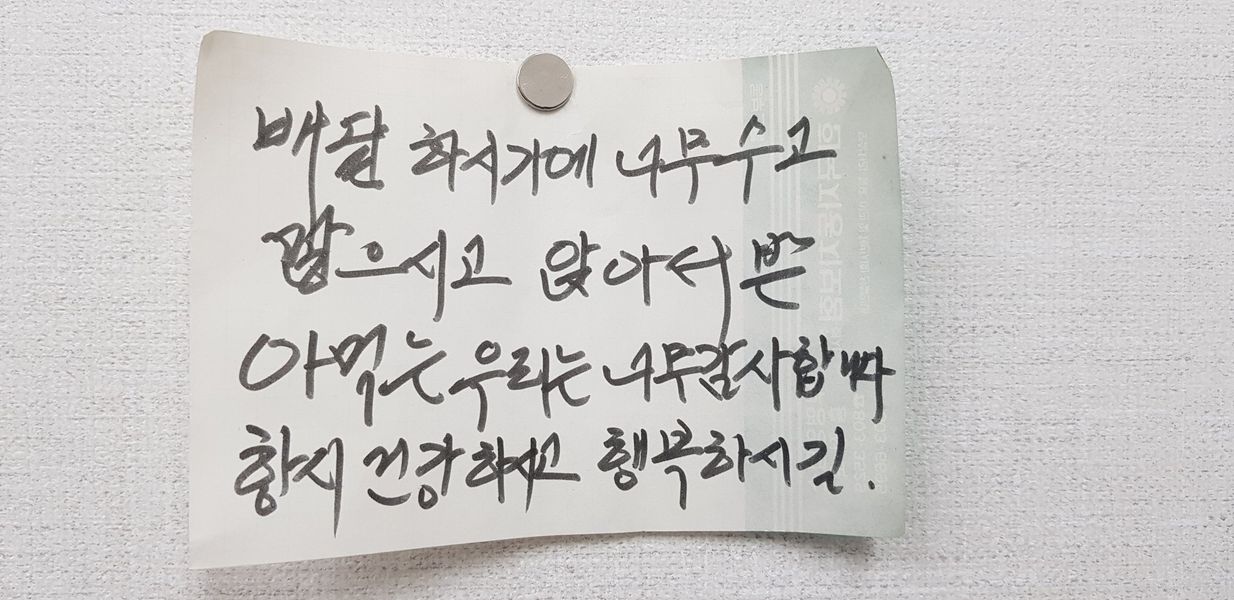 배달 하시기에 너무 수고
많으시고 앉아서 받
아먹는 우리는 너무 감사합니다
항시 건강하시고 행복하시길.